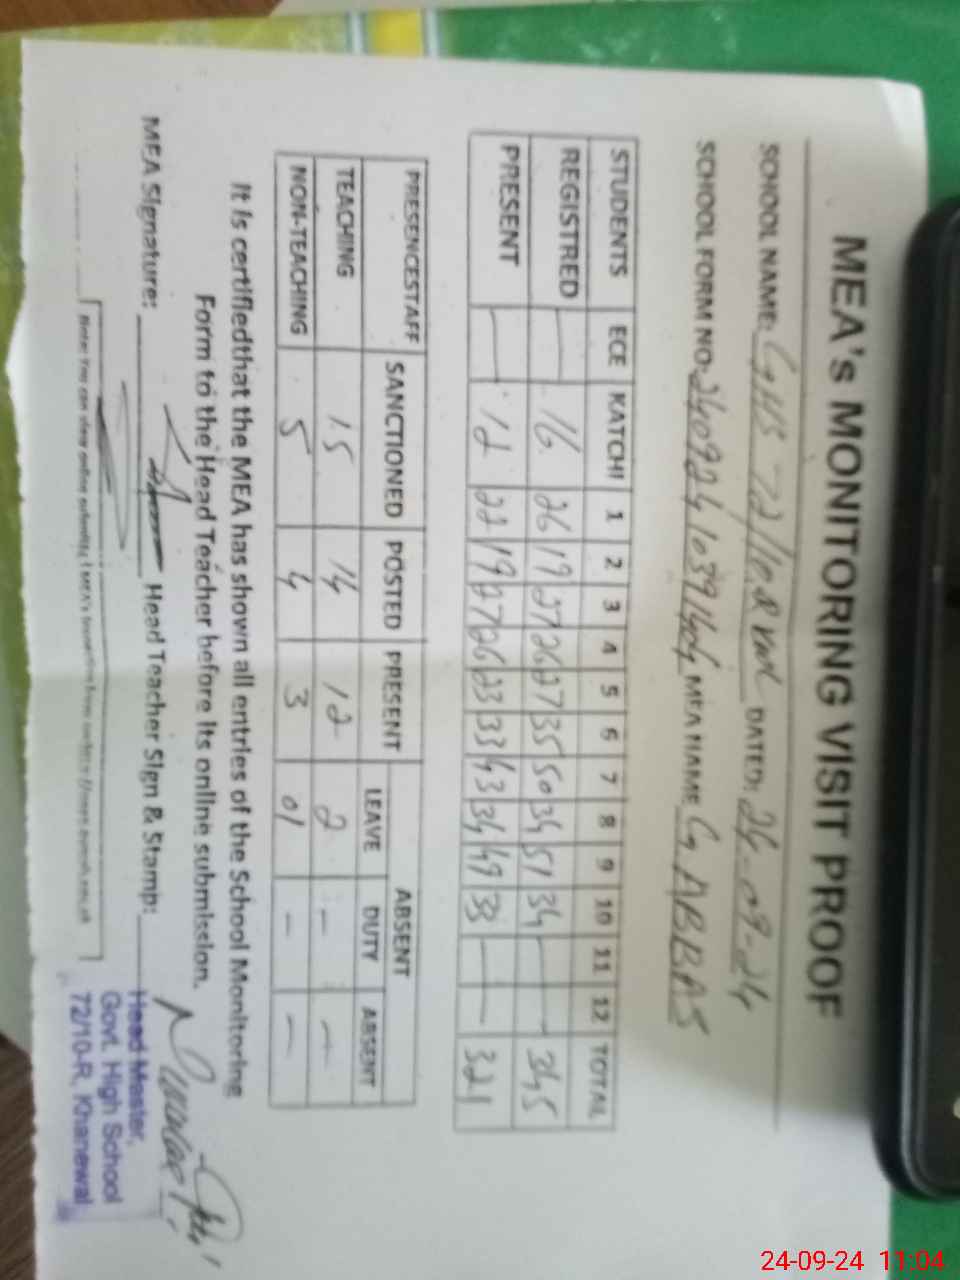 MEA's MONITORING VISIT PROOF
SCHOOL NAME: GHS 72/10.R KWL DATED: 24-09-24
SCHOOL FORM NO: 240924103914 MEA NAME G. ABBAS
STUDENTS ECE KATCHI 1 2 3 4 5 6 7 8 9 10 11 12 TOTAL
REGISTRED — 16 26 19 27 26 27 35 50 34 51 34 — — 345
PRESENT — 12 22 19 27 26 23 33 43 34 49 33 — — 321
PRESENCESTAFF SANCTIONED POSTED PRESENT ABSENT
LEAVE DUTY ABSENT
TEACHING 15 14 12 2 — —
NON-TEACHING 5 4 3 01 — —
It is certifiedthat the MEA has shown all entries of the School Monitoring
Form to the Head Teacher before its online submission.
MEA Signature: Head Teacher Sign & Stamp:
Head Master,
Govt. High School
72/10-R, Khanewal
Note: You can view online submitted MEA's
24-09-24 11:04